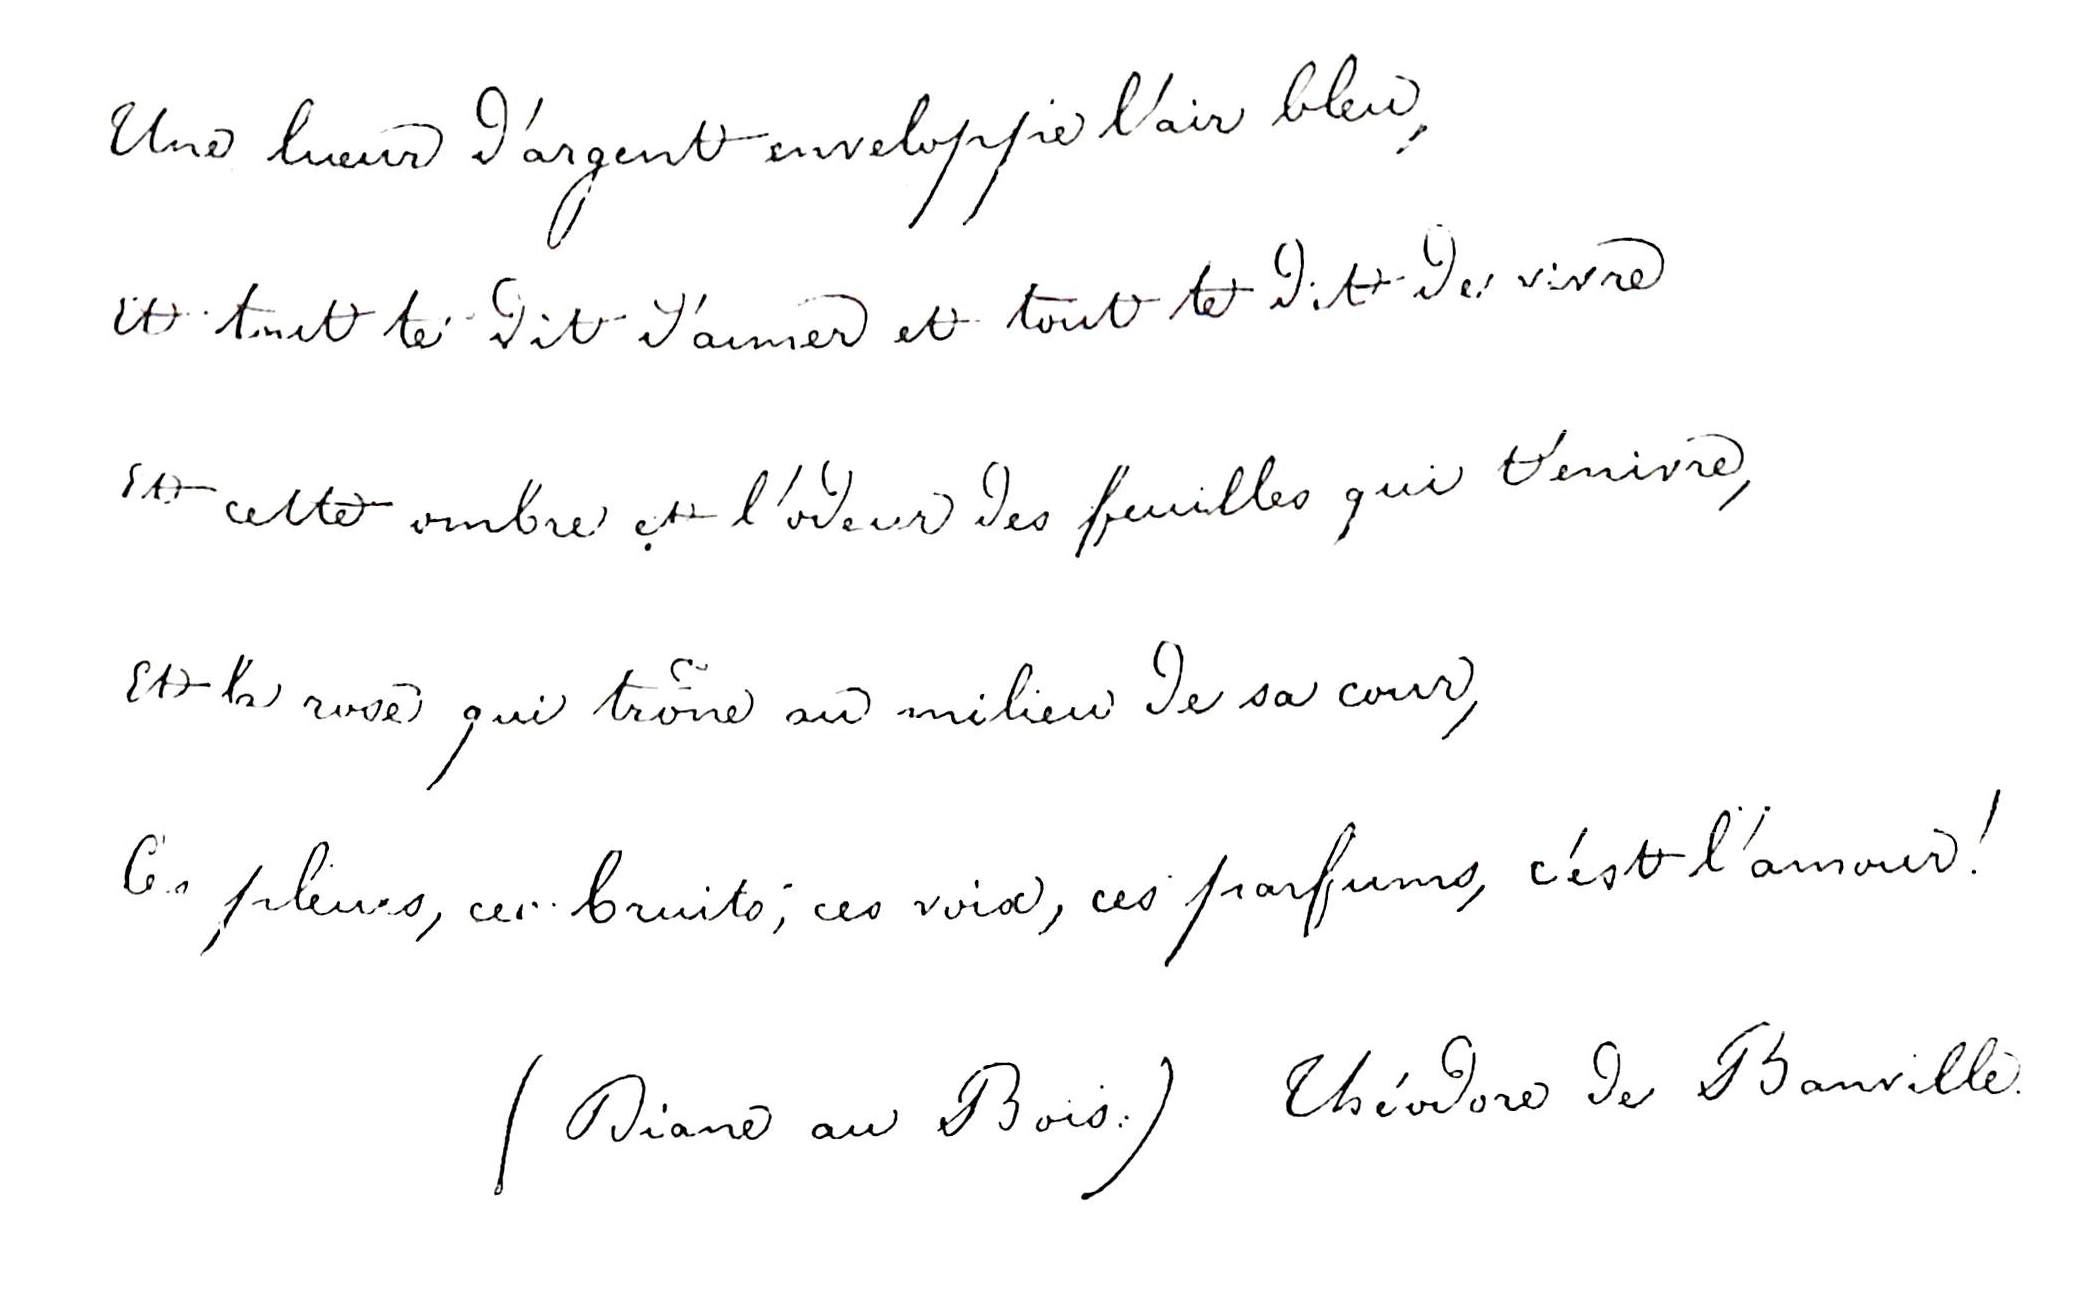 Une lueur d'argent enveloppe l'air bleu,
Et tout te dit d'aimer et tout te dit de vivre
Et cette ombre et l'odeur des feuilles qui t'enivre,
Et la rose qui trône au milieu de sa cour,
Ces pleurs, ces bruits, ces voix, ces parfums, c'est l'amour!
(Diane au Bois.) Théodore de Banville.